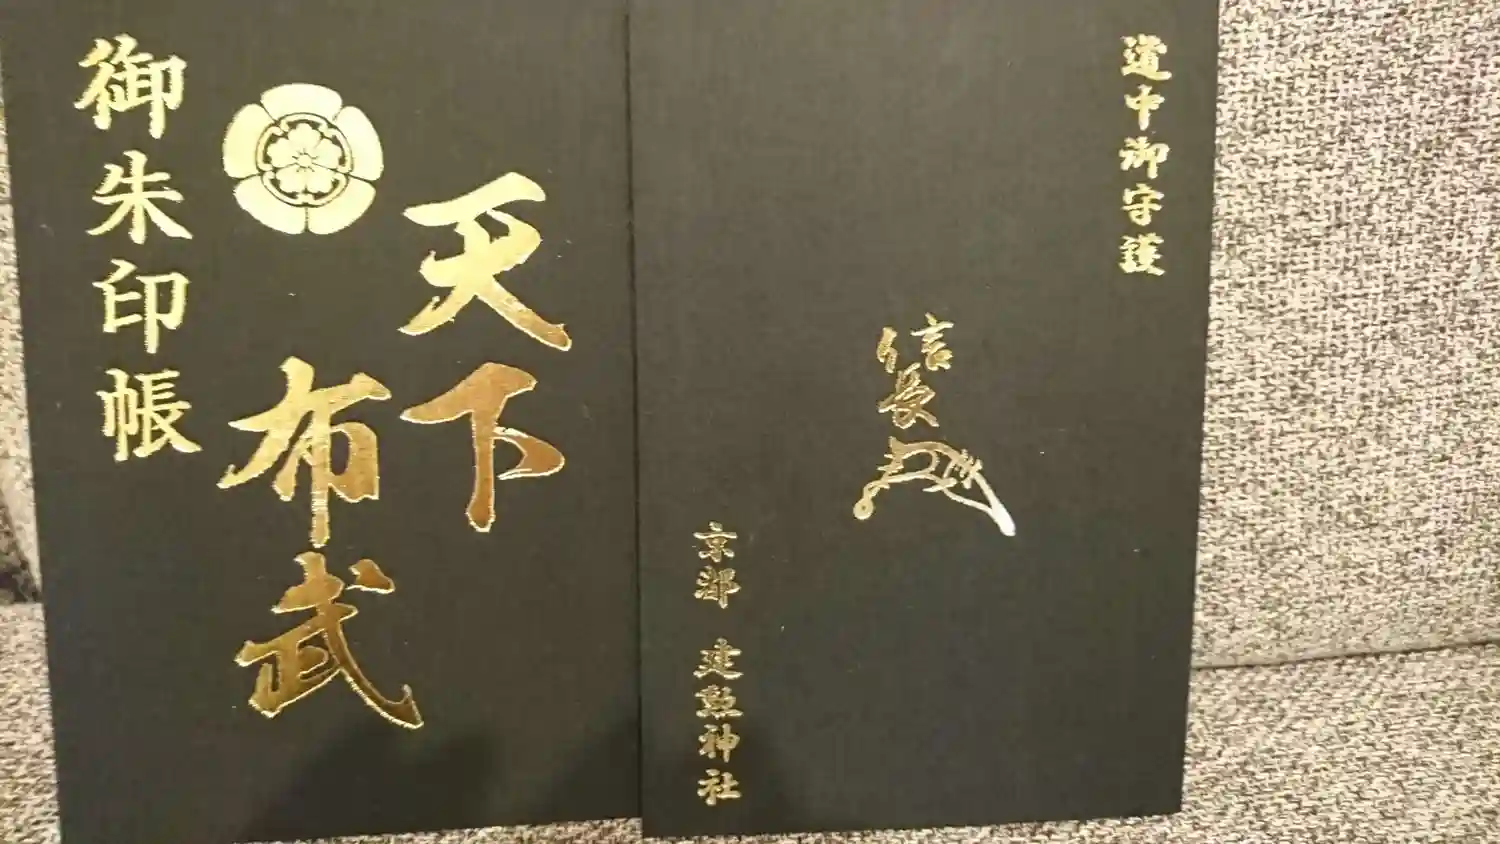 道中御守護
信長
京都 建勲神社
天下
布武
御朱印帳